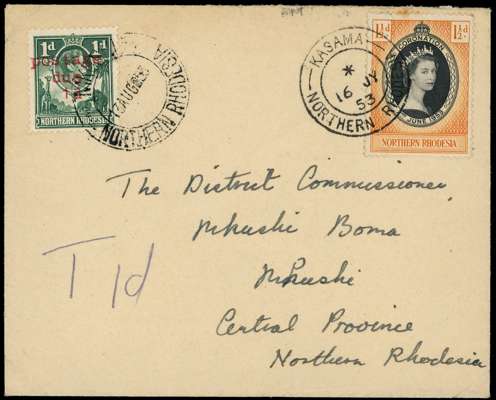 1d 1d
postage
due
1d
NORTHERN RHODESIA
AUG 53
NORTHERN RHODESIA
KASAMA
*
16 JY
53
NORTHERN
1½d 1½d
CORONATION
JUNE 1953
NORTHERN RHODESIA
The District Commissioner
Mkushi Boma
Mkushi
Central Province
Northern Rhodesia
T 1d